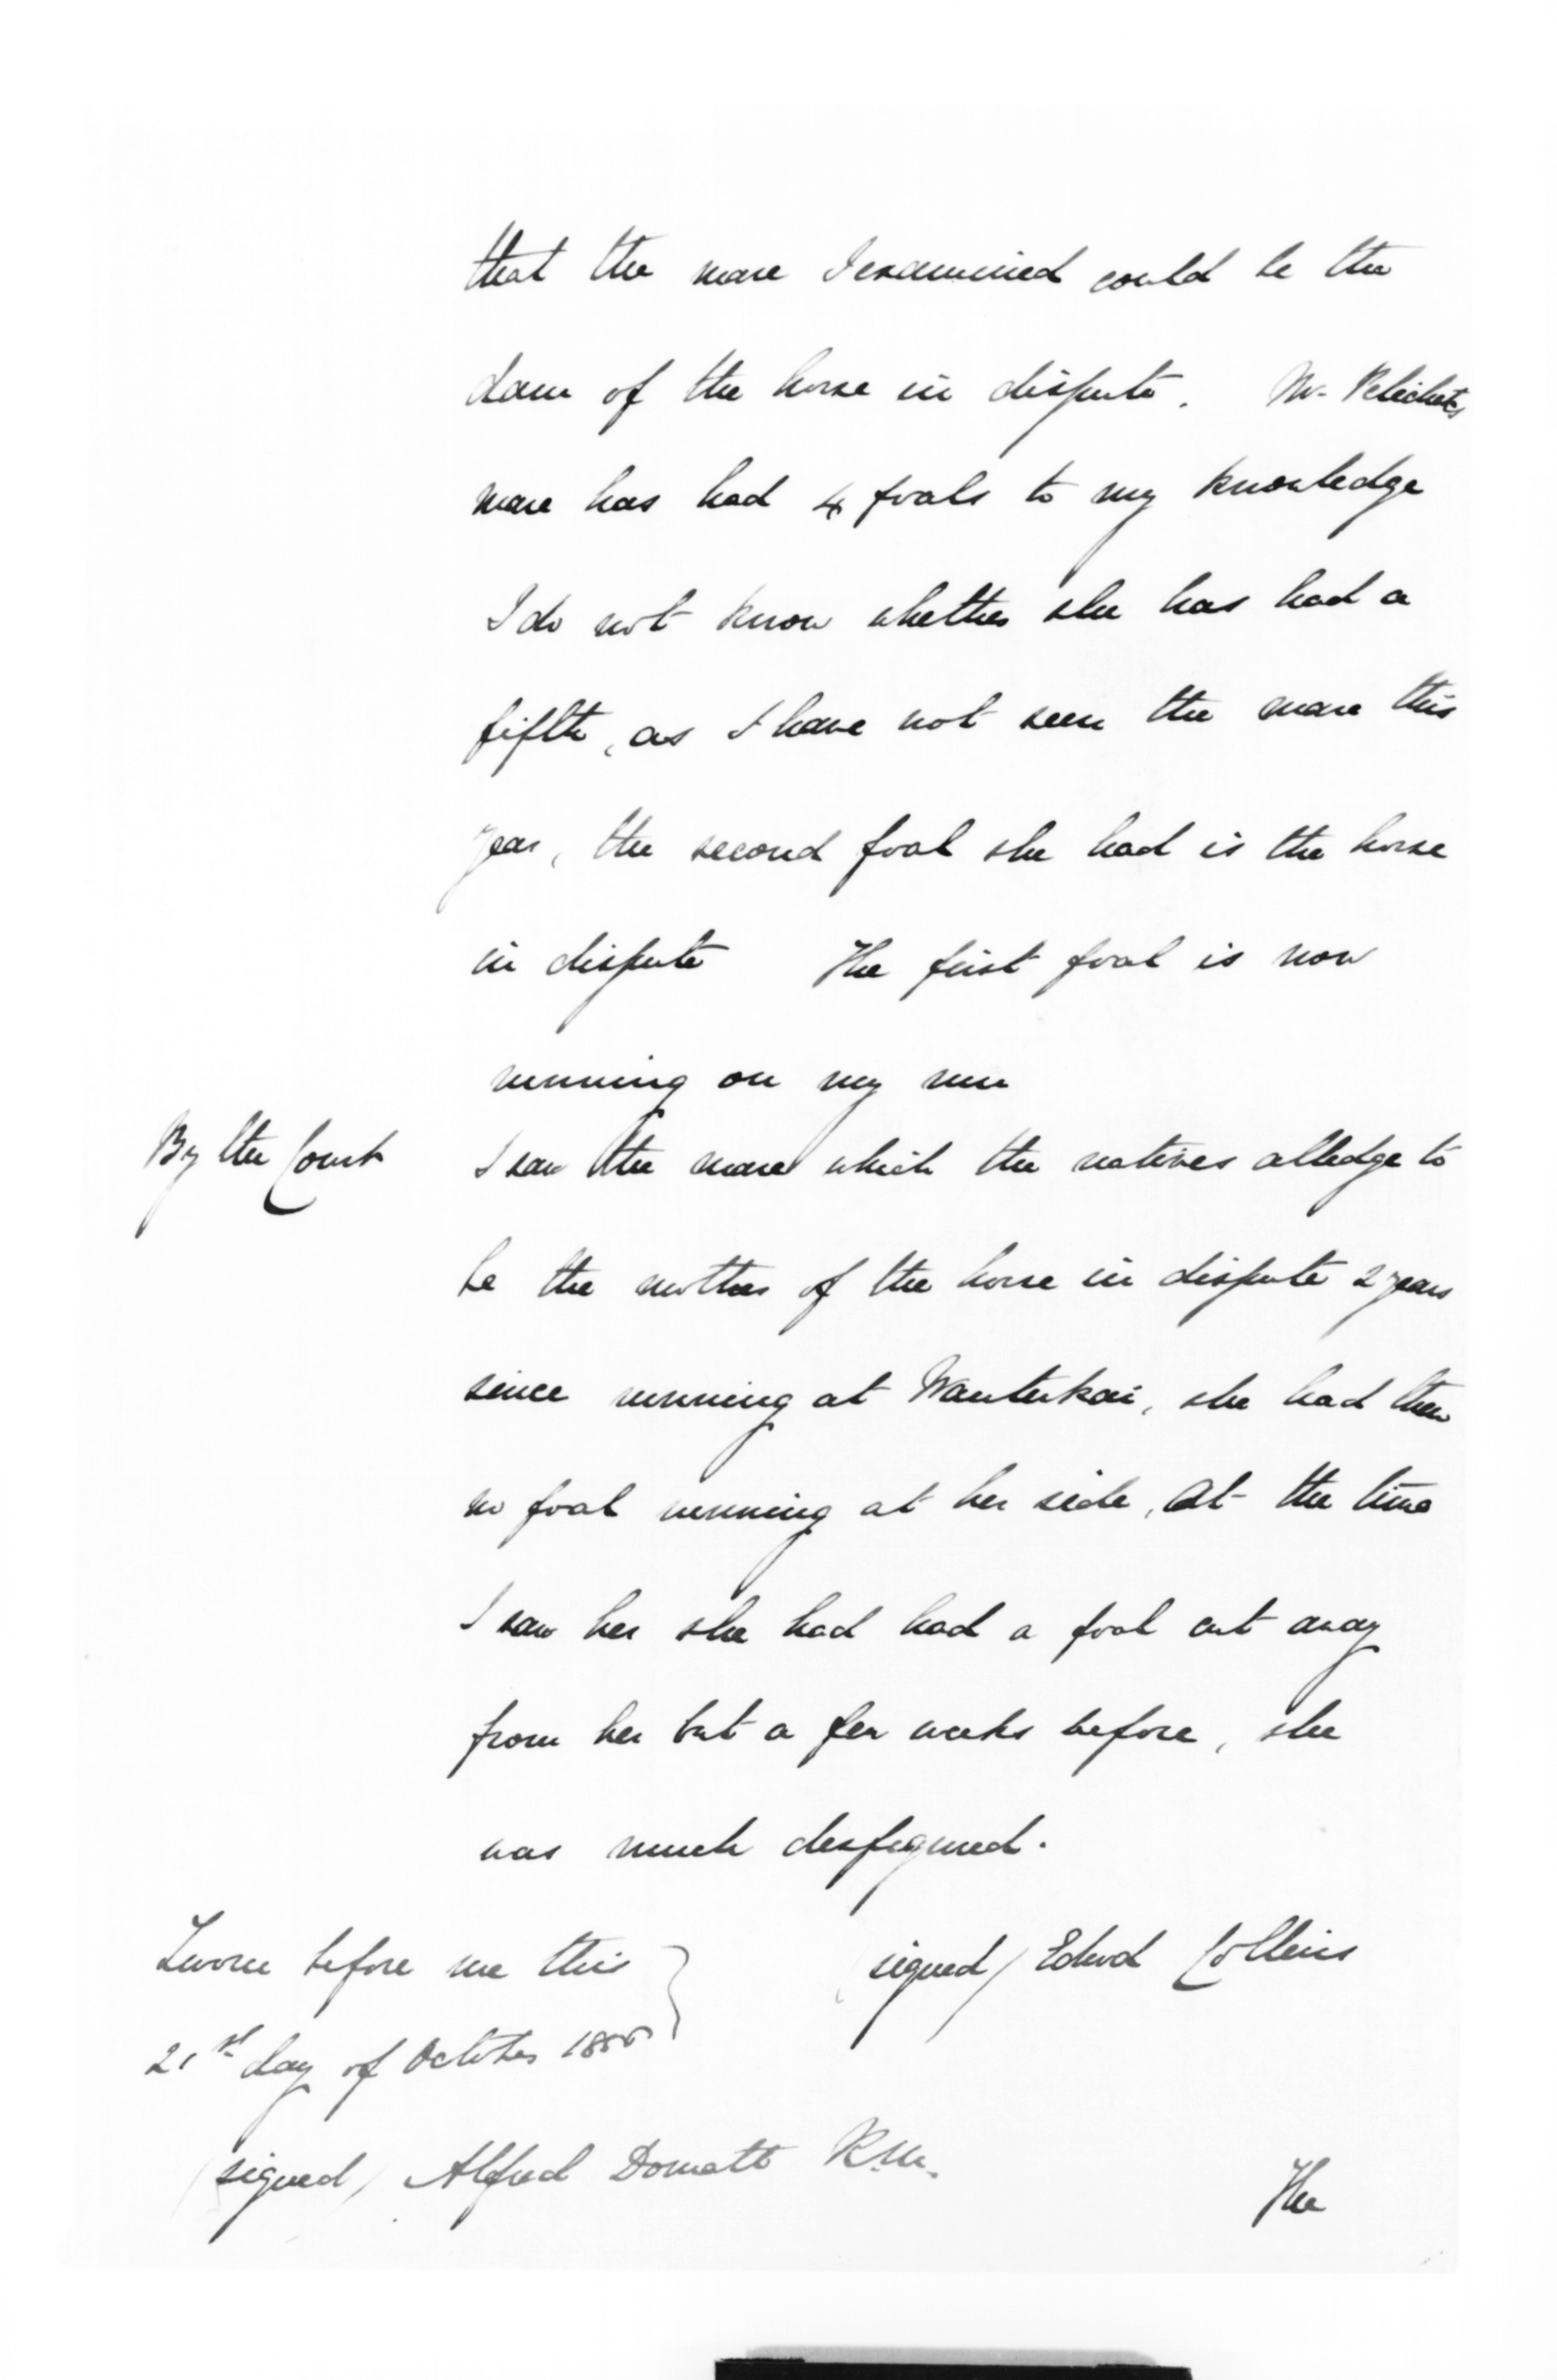 that the mare I examined could be the
dam of the horse in dispute. Mr. Pelichets
mare has had 4 foals to my knowledge
I do not know whether she has had a
fifth, as I have not seen the mare this
year, the second foal she had is the horse
in dispute The first foal is now
running on my run
By the Court I saw the mare which the natives alledge to
be the mother of the horse in dispute 2 years
since running at Wautukai, she had then
no foal running at her side, At the time
I saw her she had had a foal cut away
from her but a few weeks before, she
was much desfigured.
Sworn before me this (signed) Edwd Collins
21st day of October
(signed) Alfred Domett R.M.
The